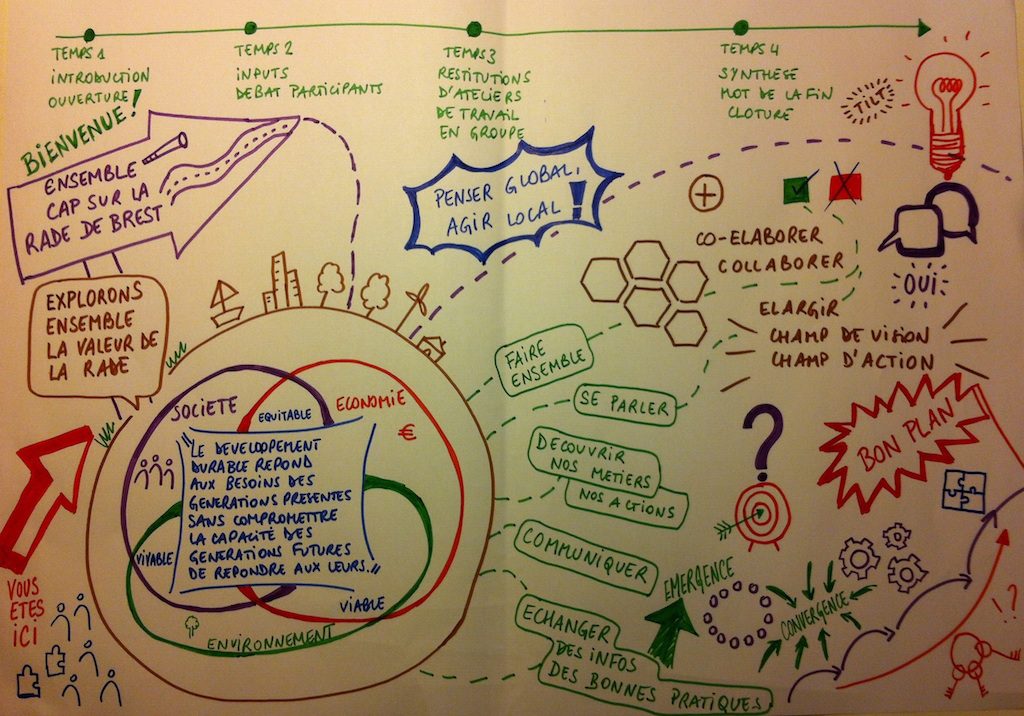 TEMPS 1
INTRODUCTION
OUVERTURE
TEMPS 2
INPUTS
DEBAT PARTICIPANTS
TEMPS 3
RESTITUTIONS
D'ATELIERS
DE TRAVAIL
EN GROUPE
TEMPS 4
SYNTHESE
MOT DE LA FIN
CLOTURE
TILT
BIENVENUE!
ENSEMBLE
CAP SUR LA
RADE DE BREST
PENSER GLOBAL,
AGIR LOCAL!
CO-ELABORER
COLLABORER
OUI
EXPLORONS
ENSEMBLE
LA VALEUR DE
LA RADE
ELARGIR
CHAMP DE VISION
CHAMP D'ACTION
FAIRE
ENSEMBLE
SE PARLER
BON PLAN
?
DECOUVRIR
NOS METIERS
NOS ACTIONS
COMMUNIQUER
ECHANGER
DES INFOS
DES BONNES PRATIQUES
SOCIETE
EQUITABLE
ECONOMIE
€
"LE DEVELOPPEMENT
DURABLE REPOND
AUX BESOINS DES
GENERATIONS PRESENTES
SANS COMPROMETTRE
LA CAPACITÉ DES
GENERATIONS FUTURES
DE REPONDRE AUX LEURS."
VIVABLE
VIABLE
ENVIRONNEMENT
VOUS
ETES
ICI
EMERGENCE
CONVERGENCE
!?